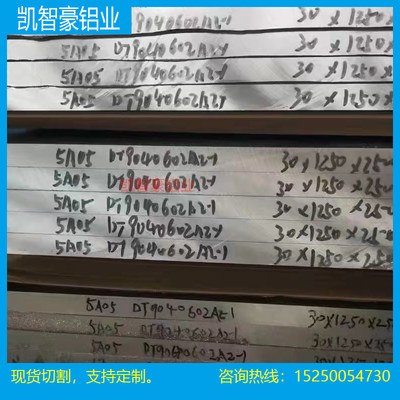 凯智豪铝业
9040602A2-1 30×1250×
5A05 DT9040602A2-1 30×1250×
5A05 DT9040602A2-1 30×1250×
5A05 DT9040602A2-1 30×1250×
5A05 DT9040602A2-1 30×1250×250
5A05 DT9040602A2-1 30×1250×250
5A05 DT9040602A2-1 30×1250×250
5A05 DT9040602A2-1 30×1250×250
5A05 DT9040602A2-1 30×1250×250
5A05 DT9040602A2-1 30×1250×25
5A05 DT9040602A2-1 30×1250×25
5A05 DT9040602A2-1 30×1250×25
现货切割，支持定制。 咨询热线：15250054730